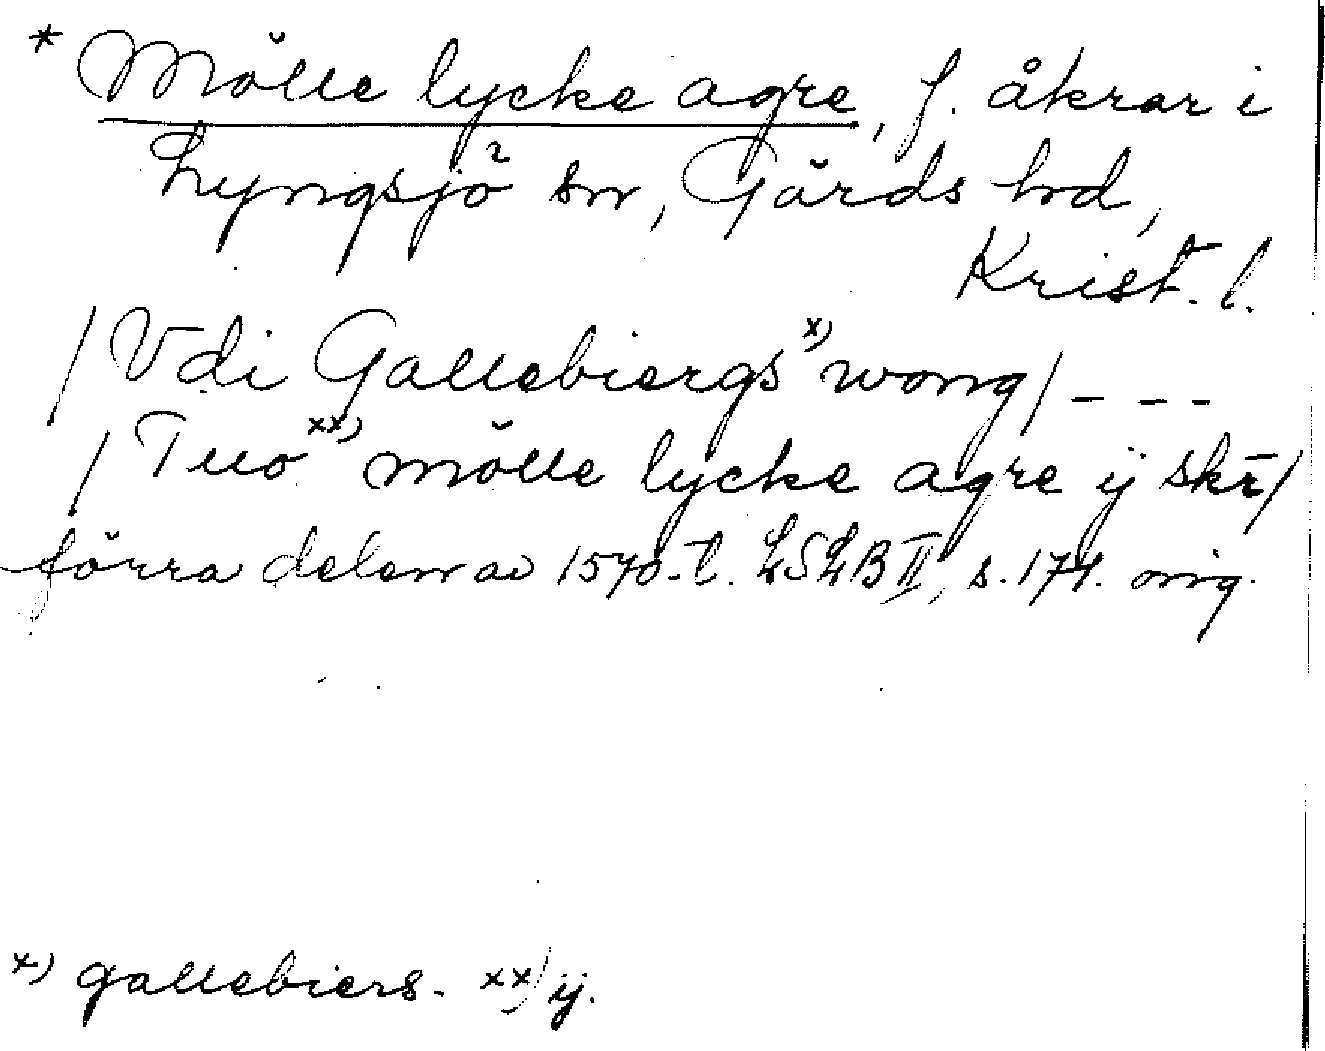 * Mölle lycke agre, f. åkrar i
Lyngsjö sn, Gärds hd,
Krist. l.
/Vdi Gallebiergs x) wong/ - - -
/Tuo xx) mölle lycke agre ÿ skr̄/
förra delen av 1570-t. LSLB II, s. 174. orig.
x) gallebiers. xx) ÿ.